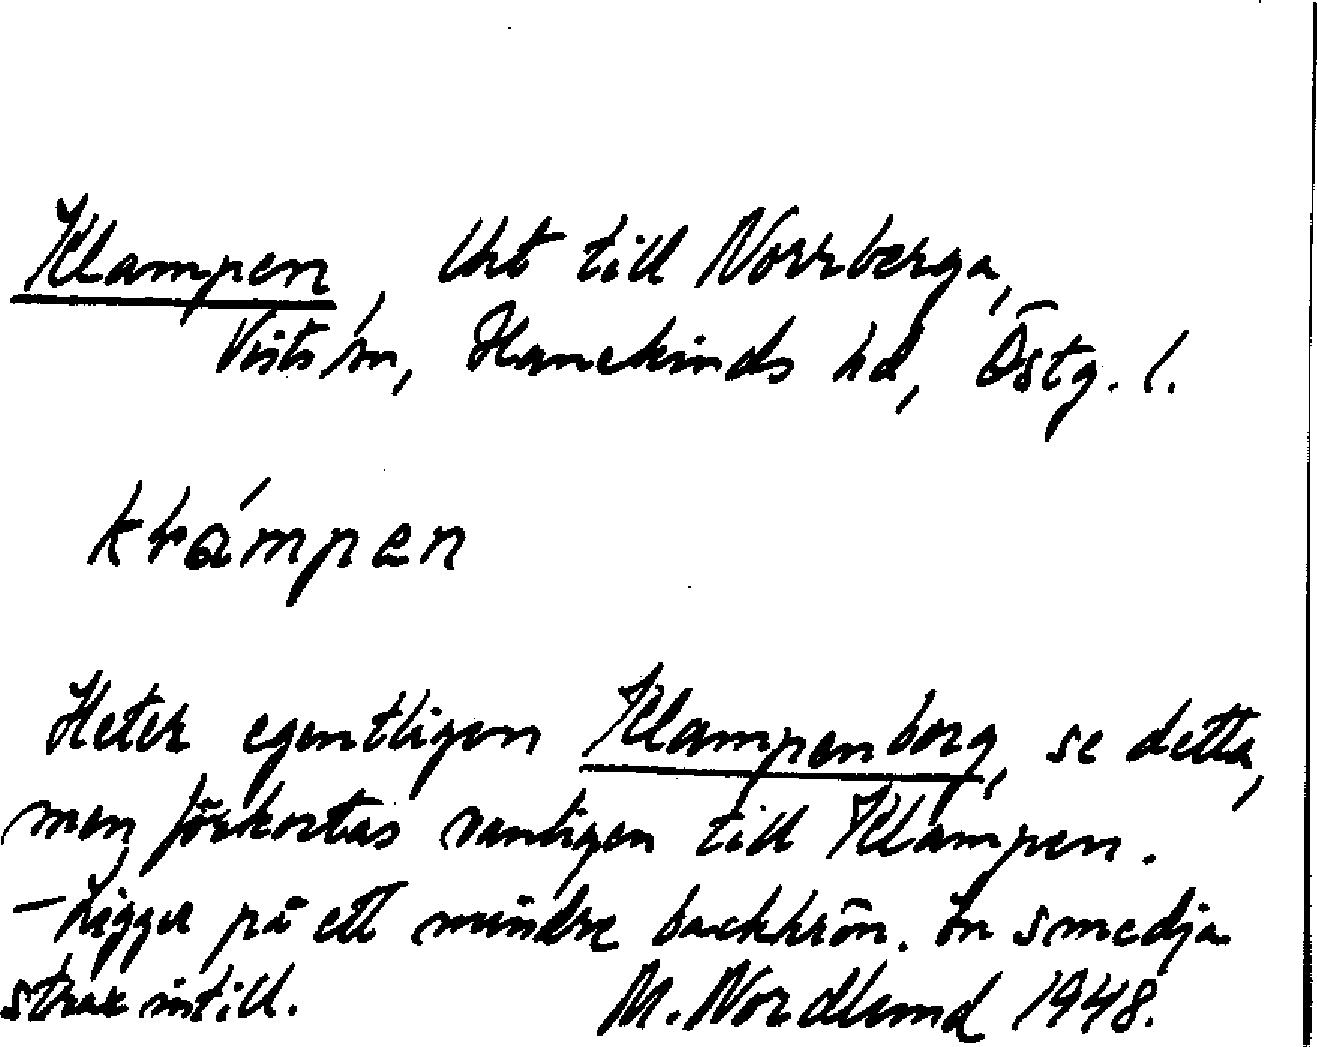 Klampen, lht till Norrberga,
Vists sn, Hanekinds hd, Östg. l.
klámpen
Heter egentligen Klampenborg, se detta,
men förkortas vanligen till Klampen.
– Ligger på ett mindre backkrön. En smedja
strax intill. M. Nordlund 1948.